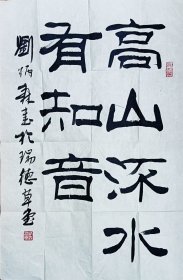 高山流水
有知音
劉炳森書於德草堂